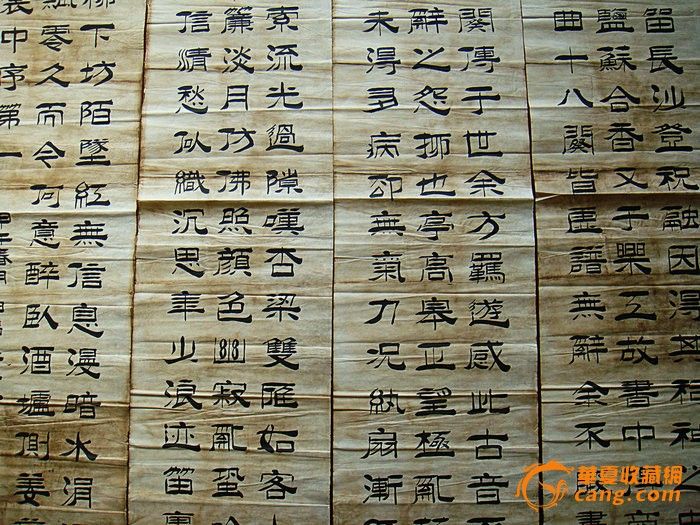 留長沙登祝融因得其祠神之
鹽蘇合香又于樂工故書中
曲十八闋皆虛譜無辭余不
闋傳于世余方羈遊感此古音
辭之怨抑也亭皋正望極亂
未得多病卻無氣力況紈扇漸
索流光過隙嘆杏梁雙雁如客
簾淡月仿佛照顏色幽寂亂蛩吟
信清愁似織沉思年少浪迹笛裏
柳下坊陌墜紅無信息漫暗水涓
飄零久而令何意醉臥酒壚側姜
裳中序第一
華夏收藏網
cang.com